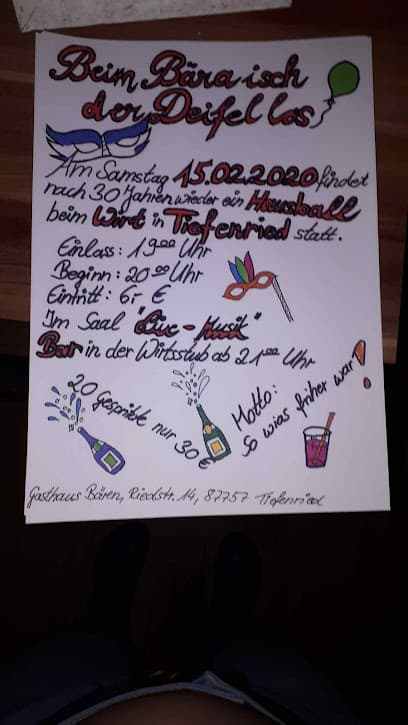 Beim Bära isch
der Deifel los
Am Samstag 15.02.2020 findet
nach 30 Jahren wieder ein Hausball
beim Wirt in Tiefenried statt.
Einlass: 19⁰⁰ Uhr
Beginn: 20⁰⁰ Uhr
Eintritt: 6,- €
Im Saal "Live-Musik"
Bar in der Wirtsstub ab 21⁰⁰ Uhr
20 Gespritzte nur 30 €
Motto:
So wias früher war!
Gasthaus Bären, Riedstr. 14, 87757 Tiefenried